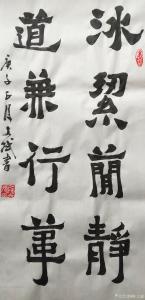 冰絜簡靜
道兼行葦
庚子正月
書